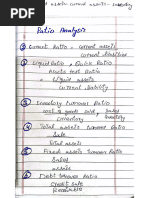 assets current assets - Inventory
Ratio Analysis
Current Ratio = current assets
current liabilities
Liquid Ratio / Quick Ratio
Acid test Ratio
= Liquid assets
current liability
Inventory Turnover Ratio
Cost of goods sold / Sales
Inventory
Total assets turnover Ratio
Sale
Total assets
Fixed assets Turnover Ratio
Sales
assets
Debt turnover Ratio
Credit Sale